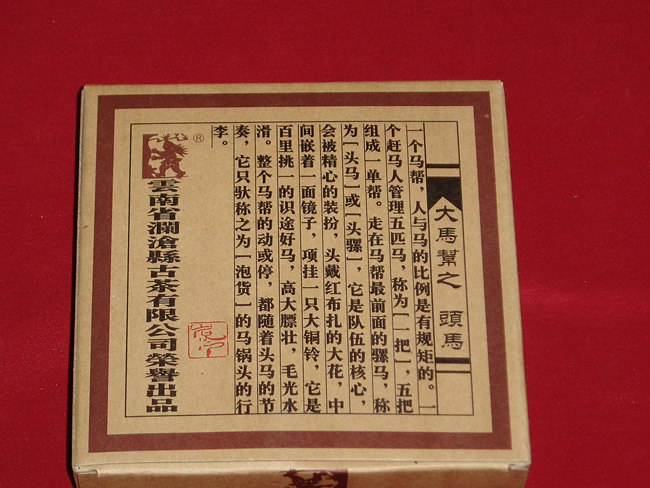 大馬幫之 頭馬
一个马帮，人与马的比例是有规矩的。一
个赶马人管理五匹马，称为［一把］，五把
组成一单帮。走在马帮最前面的骡马，称
为［头马］或［头骡］，它是队伍的核心，
会被精心的装扮，头戴红布扎的大花，中
间嵌着一面镜子，项挂一只大铜铃，它是
百里挑一的识途好马，高大膘壮，毛光水
滑。整个马帮的动或停，都随着头马的节
奏，它只驮称之为［泡货］的马锅头的行
李。
®
雲南省瀾滄縣古茶有限公司榮譽出品